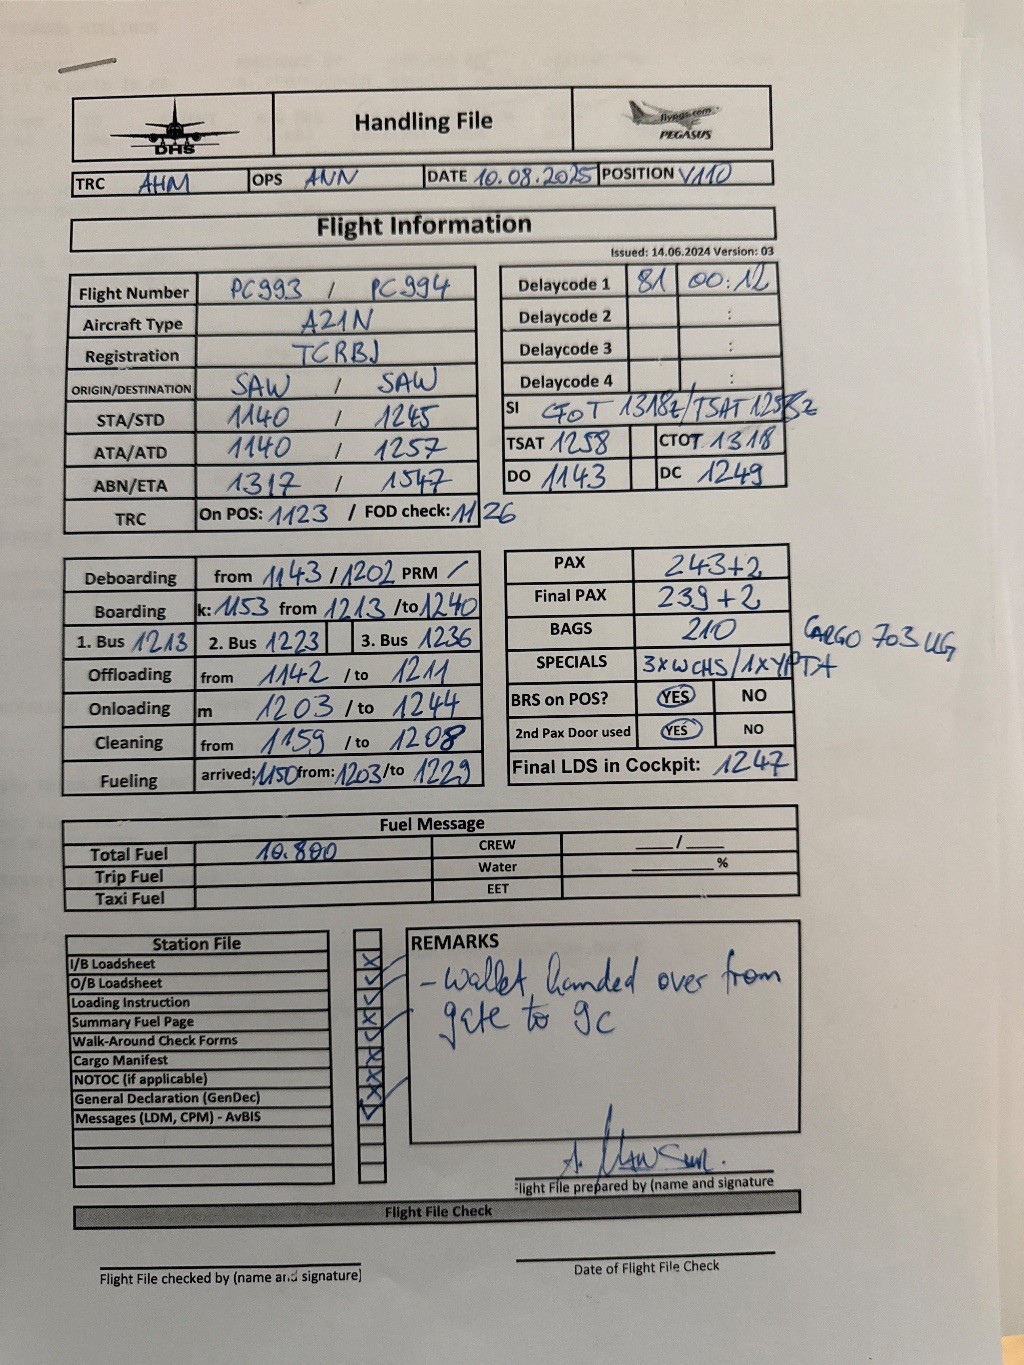 DHS
Handling File
flypgs.com
PEGASUS
TRC AHM OPS ANN DATE 10.08.2025 POSITION V110
Flight Information
Issued: 14.06.2024 Version: 03
Flight Number PC993 / PC994
Aircraft Type A21N
Registration TCRBJ
ORIGIN/DESTINATION SAW / SAW
STA/STD 1140 / 1245
ATA/ATD 1140 / 1257
ABN/ETA 1317 / 1547
TRC On POS: 1123 / FOD check: 1126
Delaycode 1 81 00:12
Delaycode 2 :
Delaycode 3 :
Delaycode 4 :
SI CTOT 1318z/TSAT 1258z
TSAT 1258 CTOT 1318
DO 1143 DC 1249
Deboarding from 1143 / 1202 PRM /
Boarding k: 1153 from 1213 /to 1240
1. Bus 1213 2. Bus 1223 3. Bus 1236
Offloading from 1142 / to 1211
Onloading m 1203 / to 1244
Cleaning from 1159 / to 1208
Fueling arrived: 1150 from: 1203 /to 1229
PAX 243+2
Final PAX 239+2
BAGS 210
CARGO 703 KG
SPECIALS 3xWCHS/1xYPTA
BRS on POS? YES NO
2nd Pax Door used YES NO
Final LDS in Cockpit: 1247
Fuel Message
Total Fuel 10.800 CREW ___/___
Trip Fuel Water ______%
Taxi Fuel EET
Station File
I/B Loadsheet
O/B Loadsheet
Loading Instruction
Summary Fuel Page
Walk-Around Check Forms
Cargo Manifest
NOTOC (if applicable)
General Declaration (GenDec)
Messages (LDM, CPM) - AvBIS
REMARKS
- wallet handed over from
gate to gc
Flight File prepared by (name and signature
Flight File Check
Flight File checked by (name and signature)
Date of Flight File Check